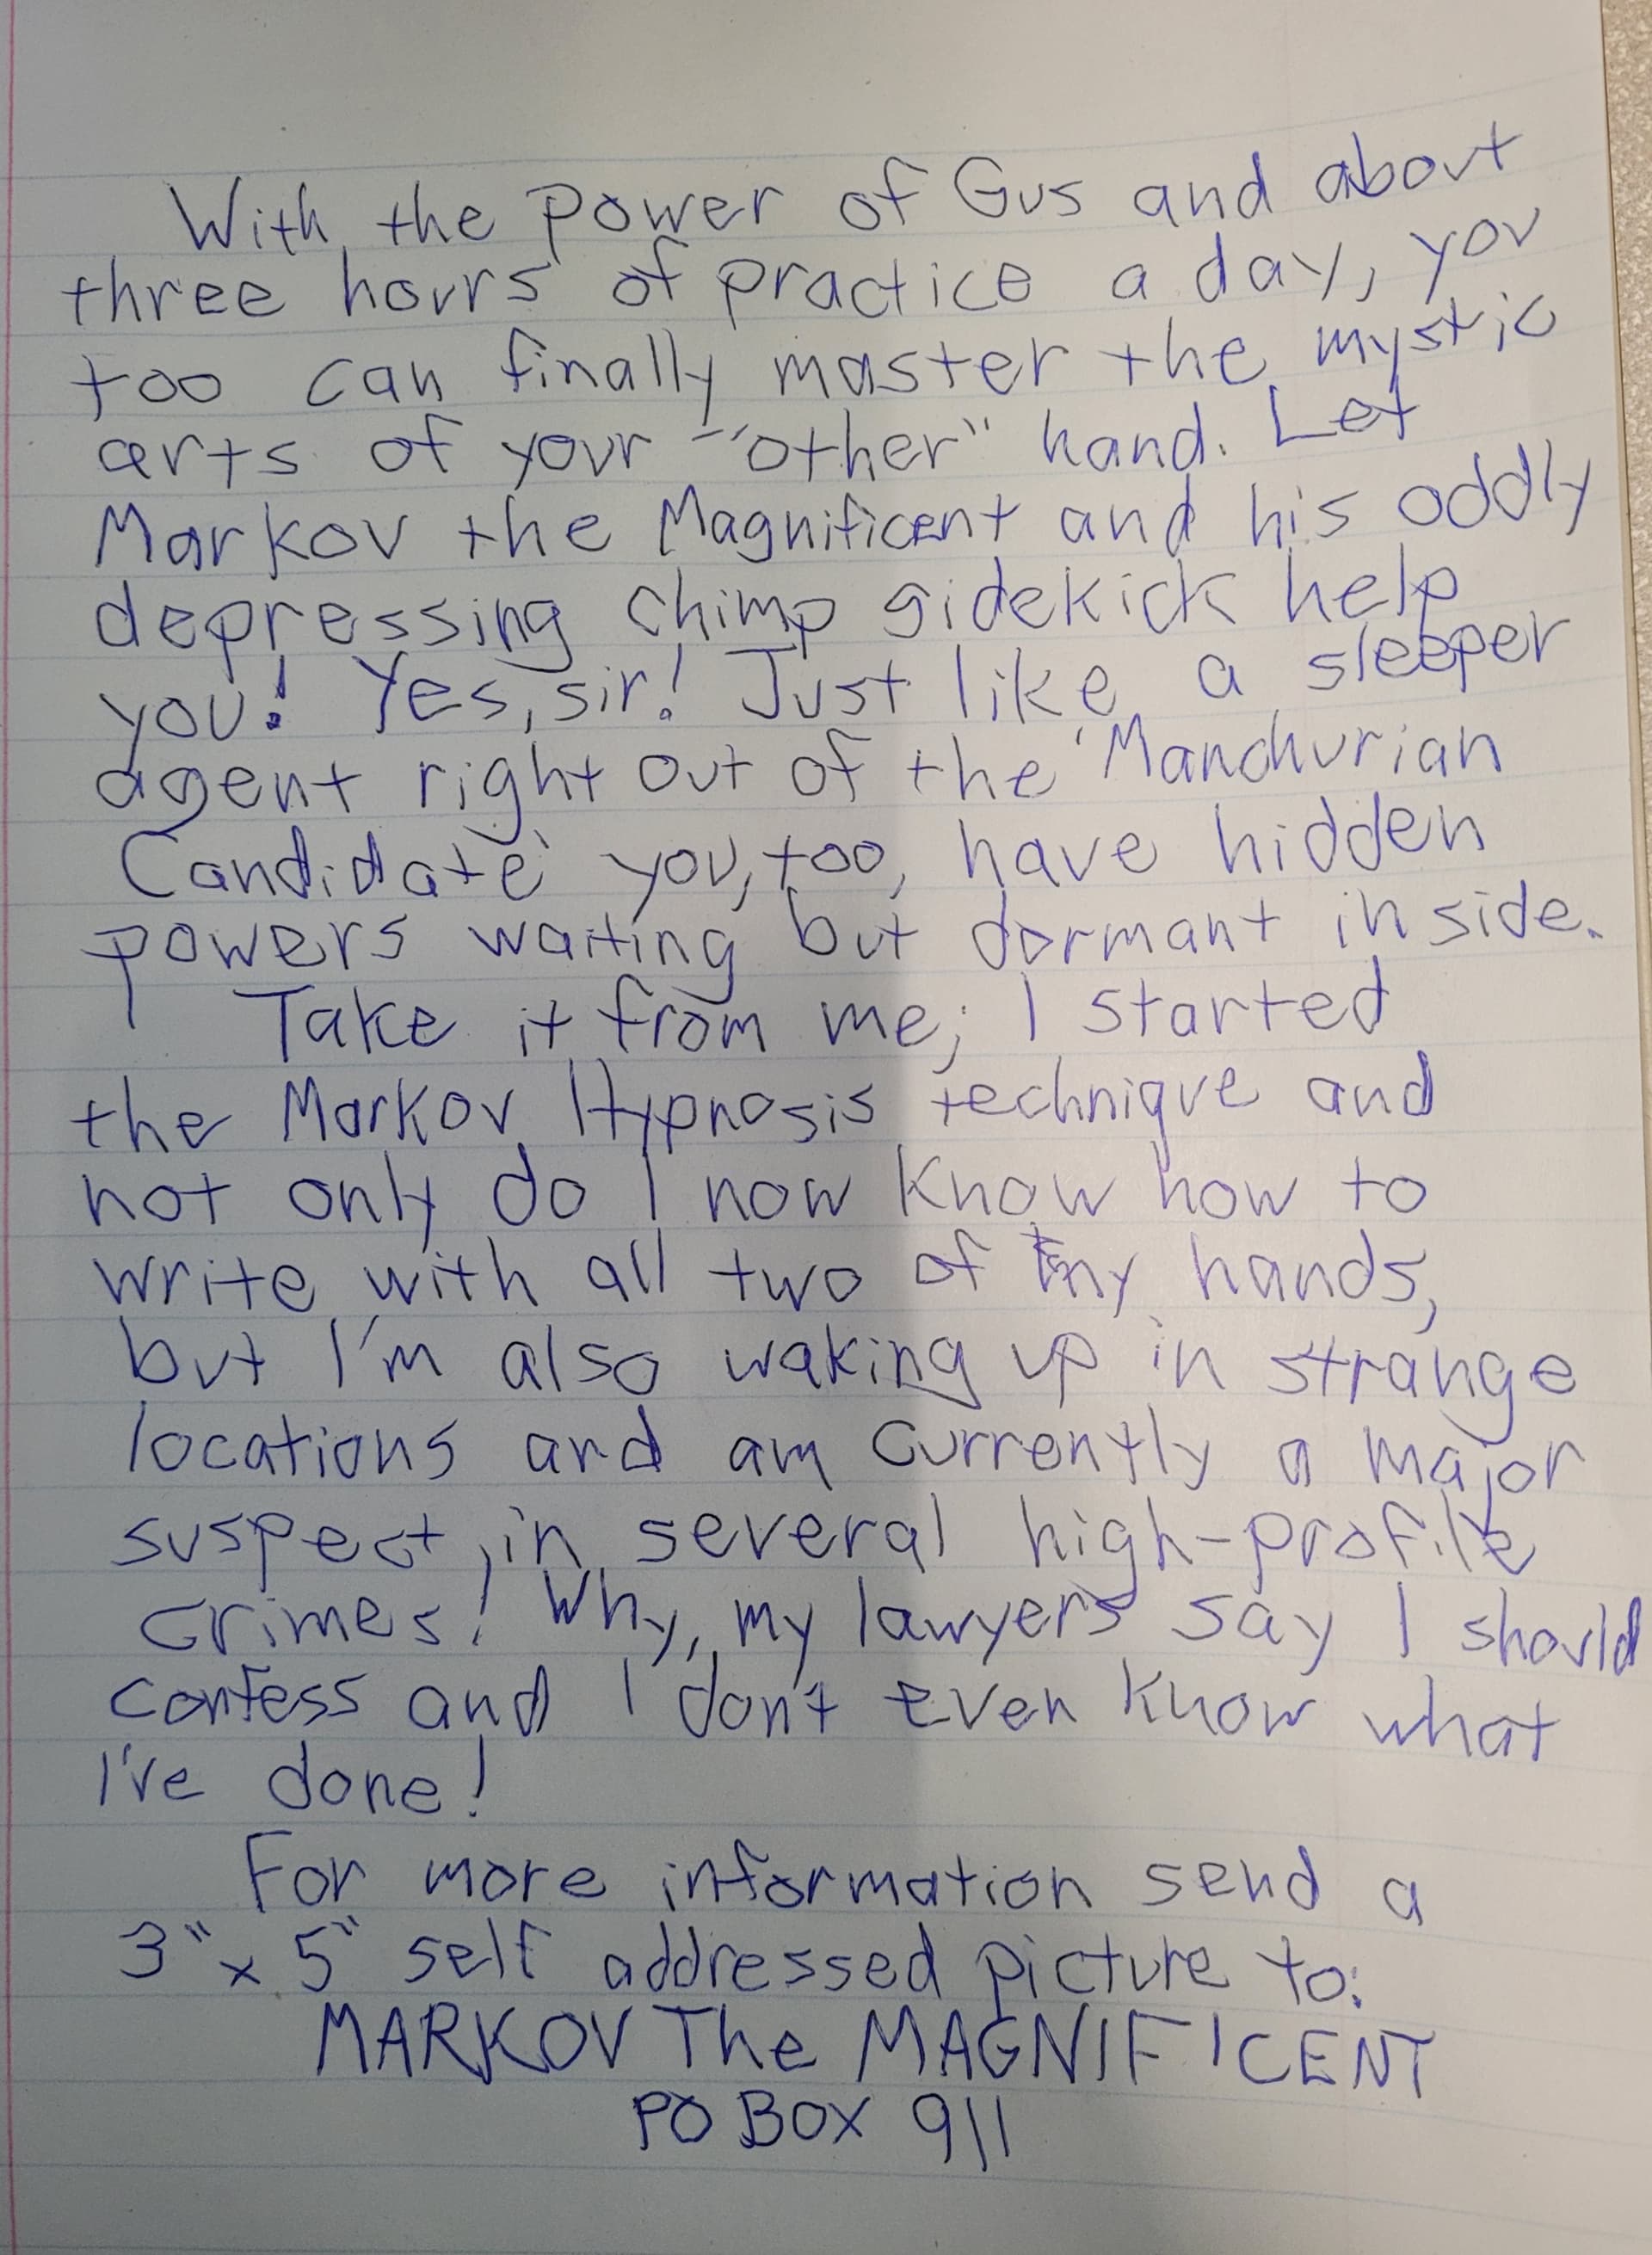 With the power of Gus and about
three hours of practice a day, you
too can finally master the mystic
arts of your "other" hand. Let
Markov the Magnificent and his oddly
depressing chimp sidekick help
you! Yes, sir! Just like a sleeper
agent right out of the 'Manchurian
Candidate' you, too, have hidden
powers waiting but dormant inside.
Take it from me; I started
the Markov Hypnosis technique and
not only do I now know how to
write with all two of my hands,
but I'm also waking up in strange
locations and am currently a major
suspect in several high-profile
crimes! Why, my lawyers say I should
confess and I don't even know what
I've done!
For more information send a
3" x 5" self addressed picture to:
MARKOV The MAGNIFICENT
PO BOX 911